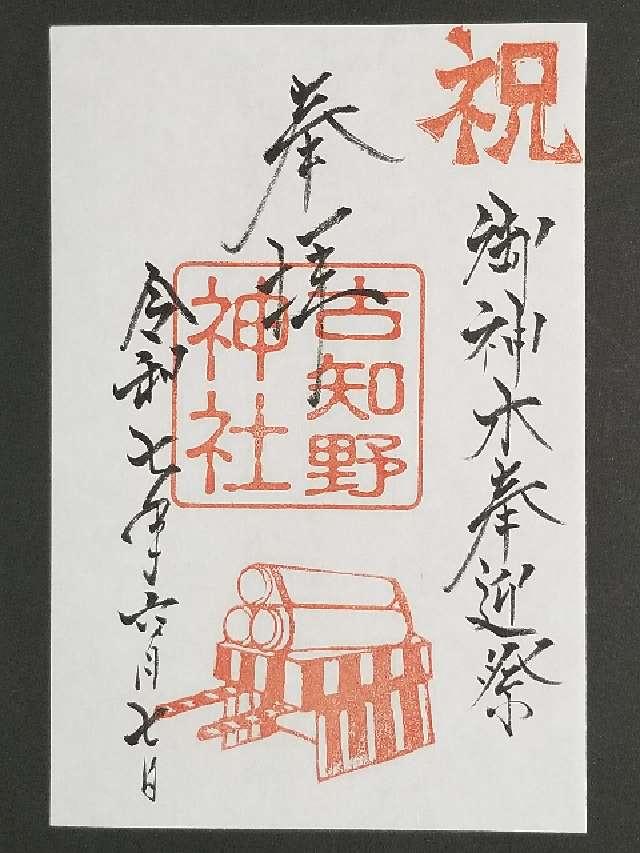 祝
御神木奉迎祭
奉拝
古知野
神社
令和七年六月七日